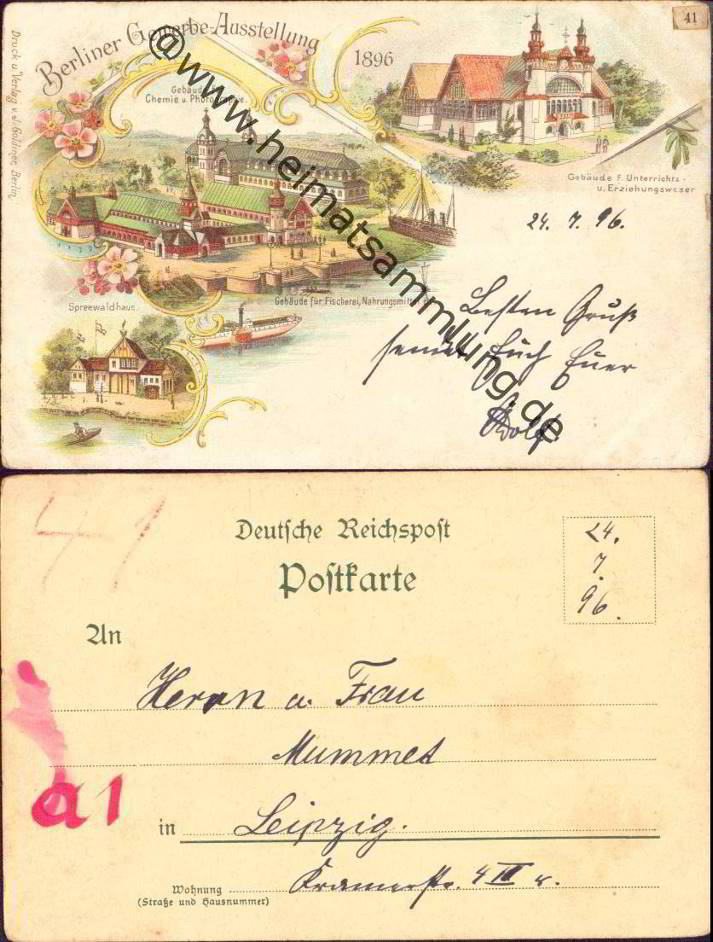 41
Berliner Gewerbe-Ausstellung
1896
Druck u. Verlag v. Berlin.
@www.heimatsammlung.de
Gebäude
Chemie u.
Gebäude f. Unterrichts-
u. Erziehungsweser
24. 7. 96.
Gebäude für Fischerei, Nahrungsmittel
Spreewaldhaus.
Besten Gruß
sendet Euch Euer
Adolf
41
Deutsche Reichspost
Postkarte
24.
7.
96.
An
Herrn u. Frau
Mummet
a1
in Leipzig.
Wohnung Kramerstr. 4 III r.
(Straße und Hausnummer)